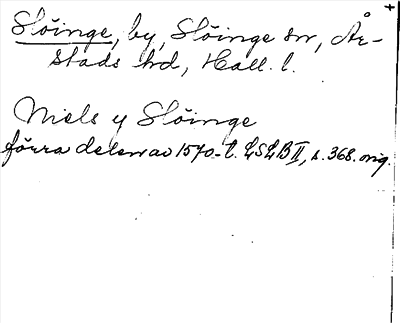 Slöinge, by, Slöinge sn, År-
stads hd, Hall. l.
Niels y Slöinge
förra delen av 1570-t. LSLB II, s. 368. orig.